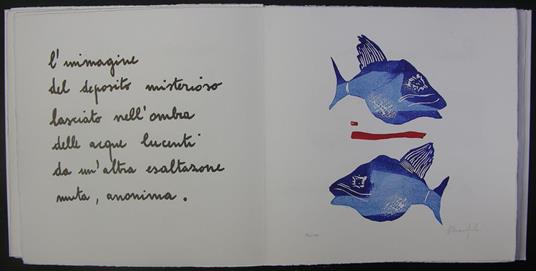 l'immagine
del deposito misterioso
lasciato nell'ombra
delle acque lucenti
da un'altra esaltazione
muta, anonima.